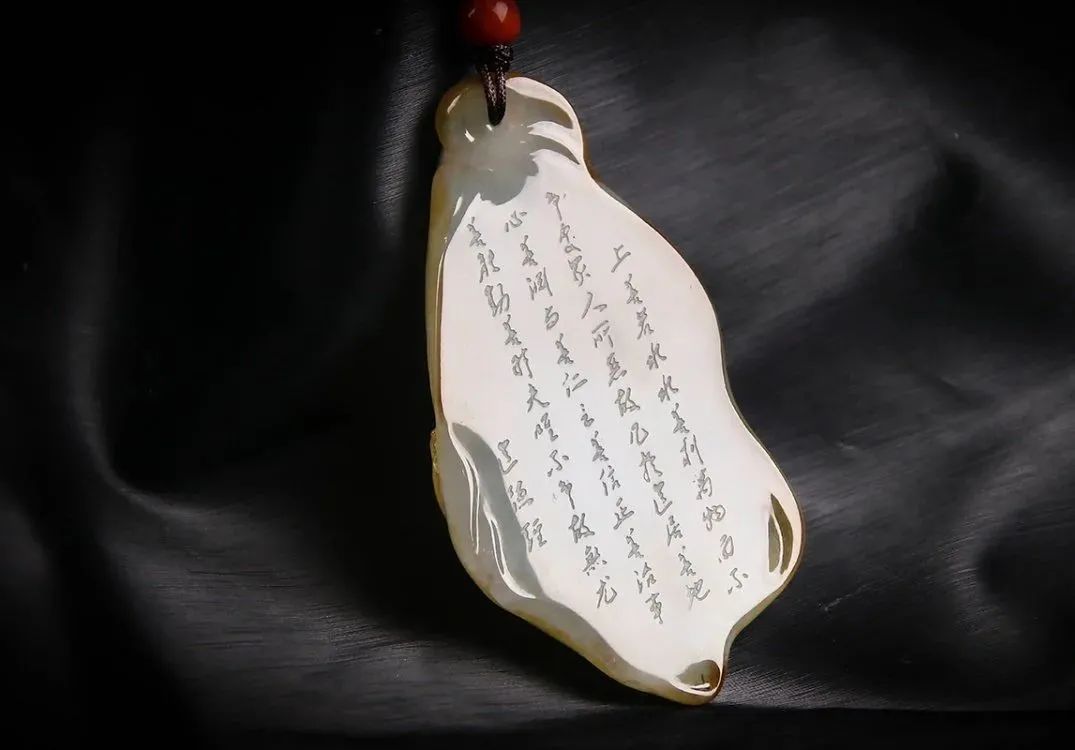 上善若水水善利萬物而不
爭處眾人所惡故几於道居善地
心善淵与善仁言善信正善治事
善能動善時夫唯不爭故無尤
道德經